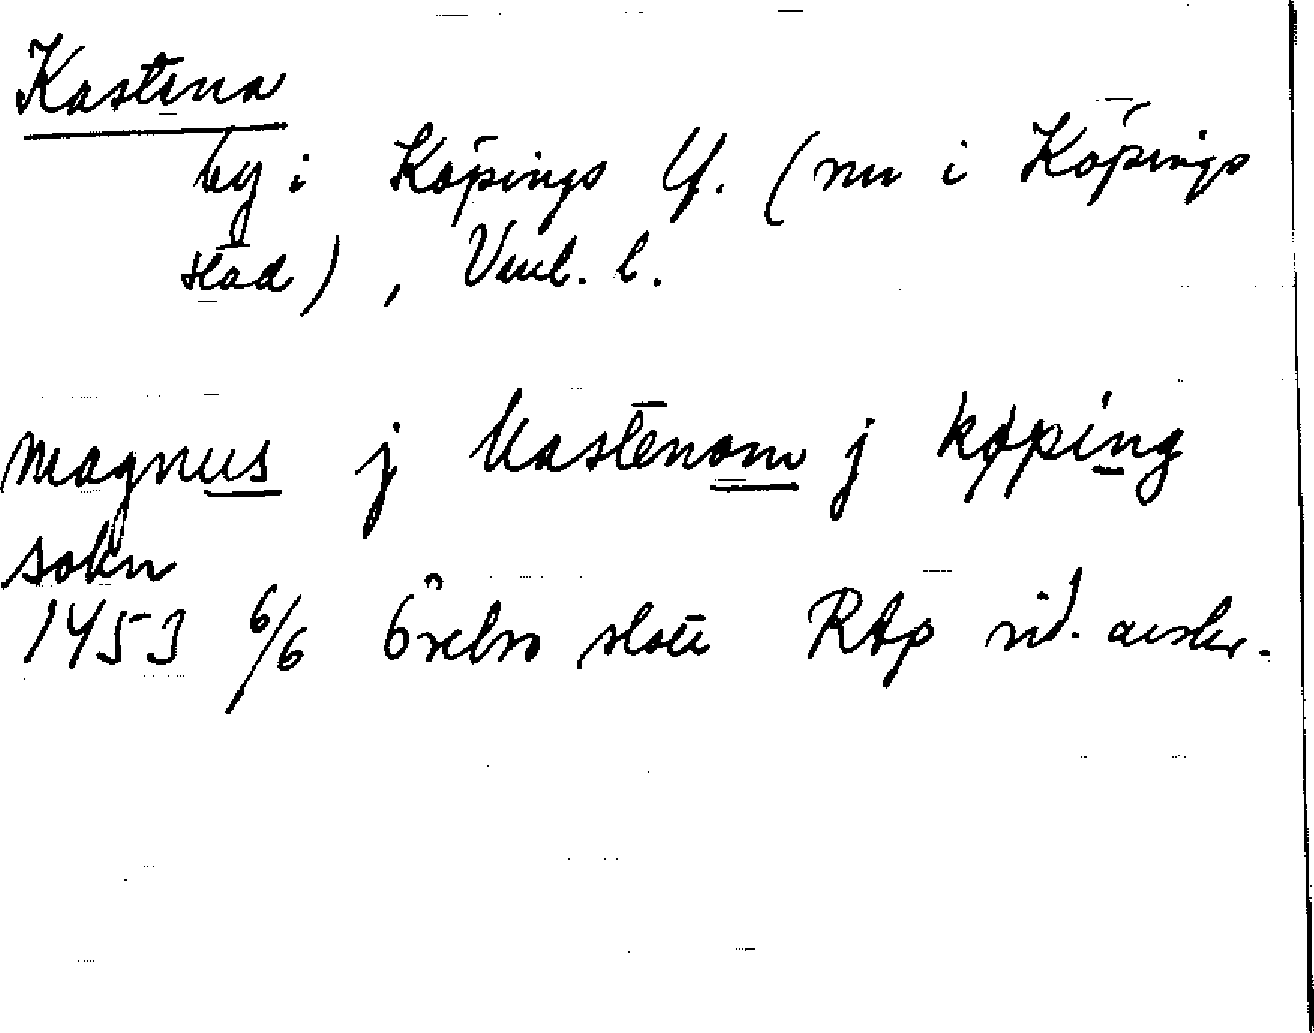 Kastena
by i Köpings lf. (nu i Köpings
stad), Vml. l.
magnus j kastenom j køping
sokn
1453 6/6 Örebro slott RAp vid. avskr.